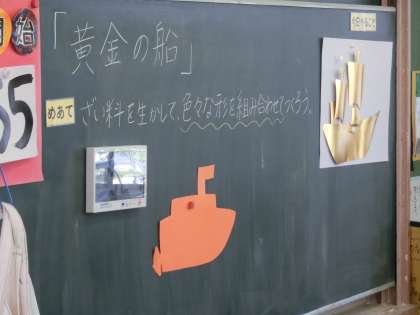 「黄金の船」
めあて ざい料を生かして、色々な形を組み合わせてつくろう。
始
65